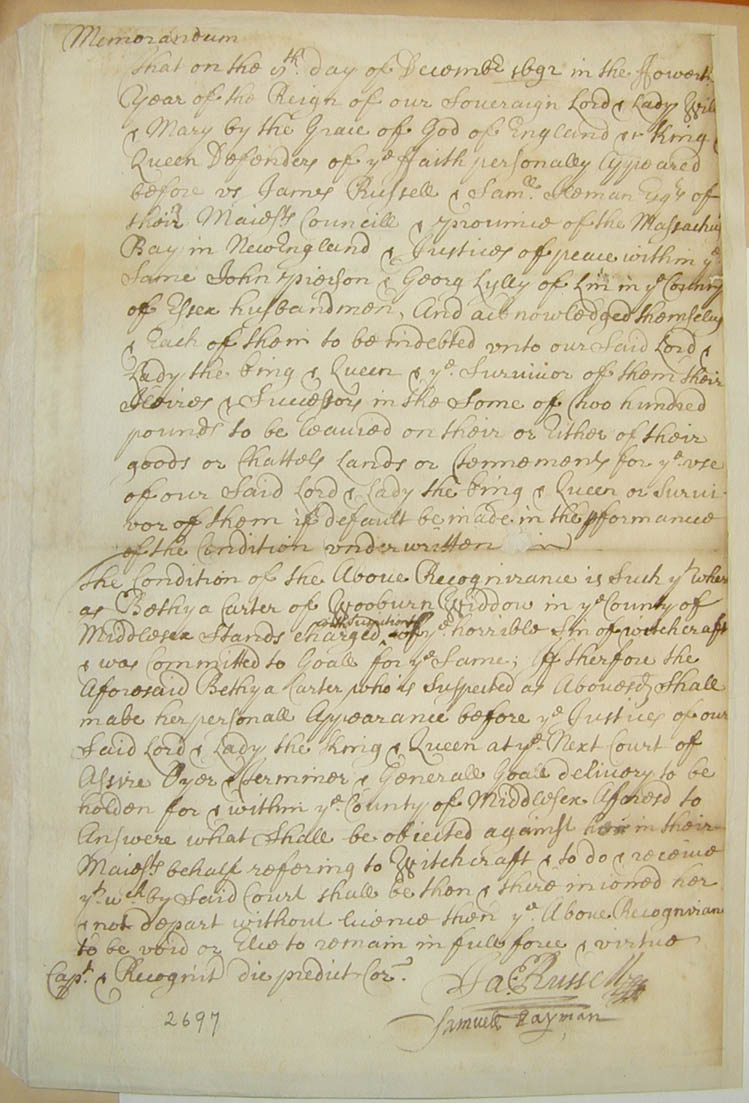 Memorandum
That on the 7th. day of Decembr 1692 in the ffowerth
Year of the Reign of our Soveraign Lord & Lady Will
& Mary by the Grace of God of England &c King &
Queen Defenders of ye ffaith personally Appeared
before vs James Russell & Samll. Heman Esqs of
their Maiests Councill & prouince of the Massachu
Bay in NewEngland & Justices of peace within ye
Same John Pierson & Georg Lylly of Lin in ye County
of Essex husbandmen, And acknowledged themselus
& Each of them to be indebted vnto our Said Lord &
Lady the King & Queen & ye. Surviuor of them their
Heires & Successors in the Some of two hundred
pounds to be leauied on their or Either of their
goods or Chattels Lands or tennements for ye. vse
of our Said Lord & Lady the King & Queen or Survi
vor of them if default be made in the pformance
of the Condition vnderwritten
The Condition of the Above Recognizance is Such yt wher
as Bethya Carter of Wooburn Widdow in ye County of
Middlesex Stands charged with Suspition of ye. horrible Sin of witchcraft
& was Committed to Goale for ye Same; If therfore the
Aforesaid Bethya Carter who is Suspected as Abovesd, Shall
make her personall Appearance before ye Justices of our
Said Lord & Lady the King & Queen at ye. Next Court of
Assize Oyer & Terminer & Generall Goale delivery to be
holden for & within ye. County of Middlesex Aforesd to
Answere what Shall be objected against her in their
Maiests behalf refering to Witchcraft & to do & receiue
yt wch by Said Court shall be then & there inioned her
& not depart without licence then ye. Above Recognizan
to be void or Else to remain in full force & virtue
Capt. & Recognit die predict Cor.
Jas Russell
Samuell Hayman
2697